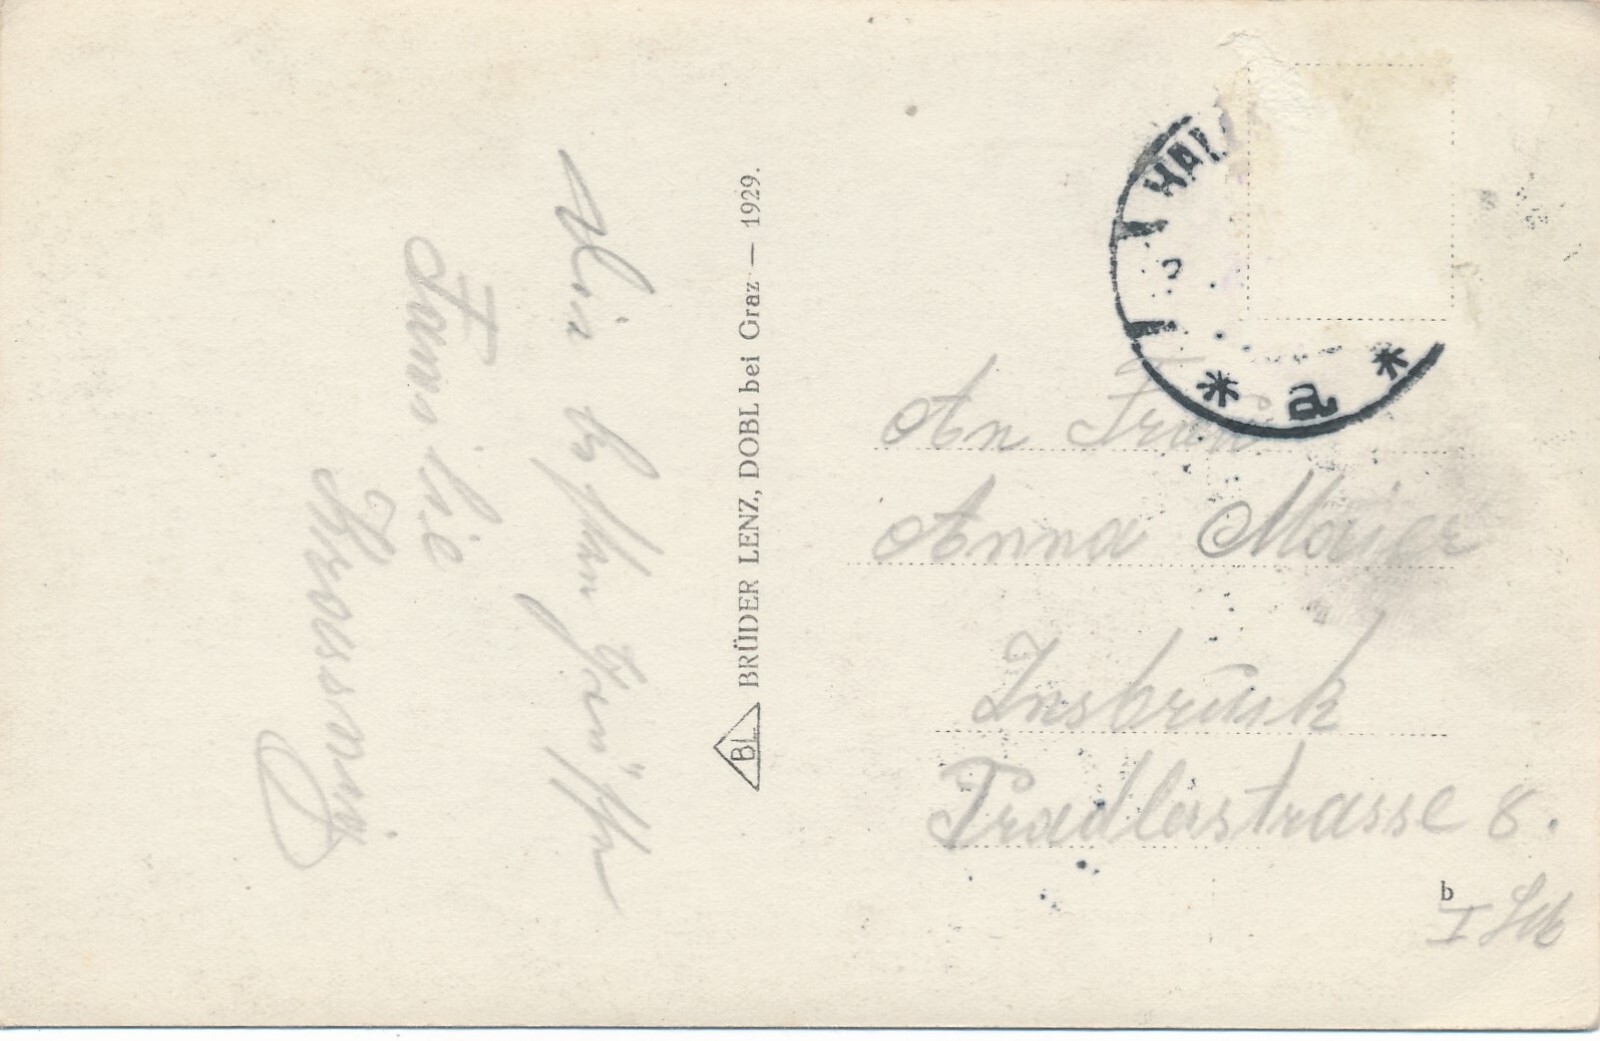 Die besten Grüsse
Familie
BRÜDER LENZ, DOBL bei Graz — 1929.
BL
HAL
a
An Frau
Anna Maier
Insbruck
Pradlerstrasse 8.
b
I